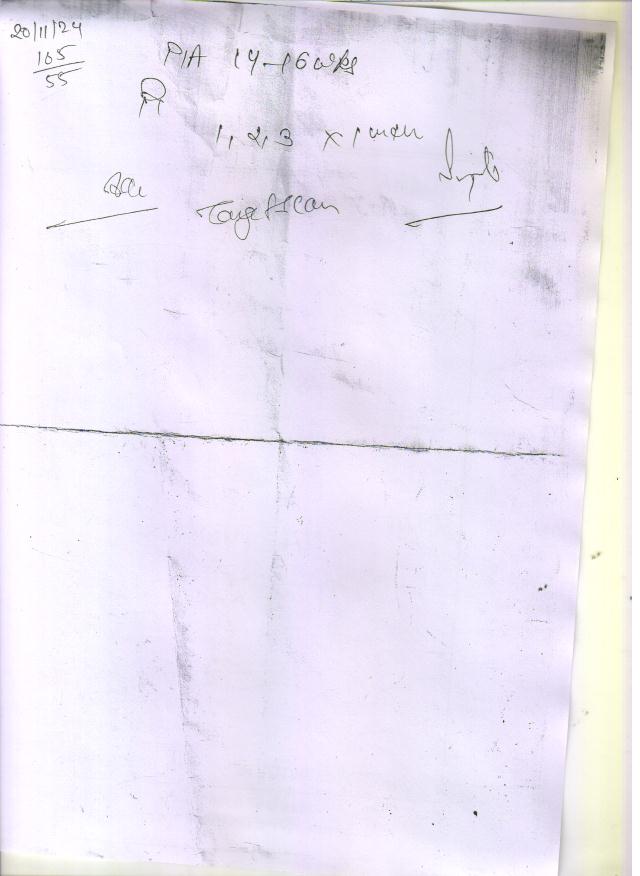 20/11/24
105
55
P/A 14-16 wks
Rx
1, 2, 3 x 1 month
Target scan